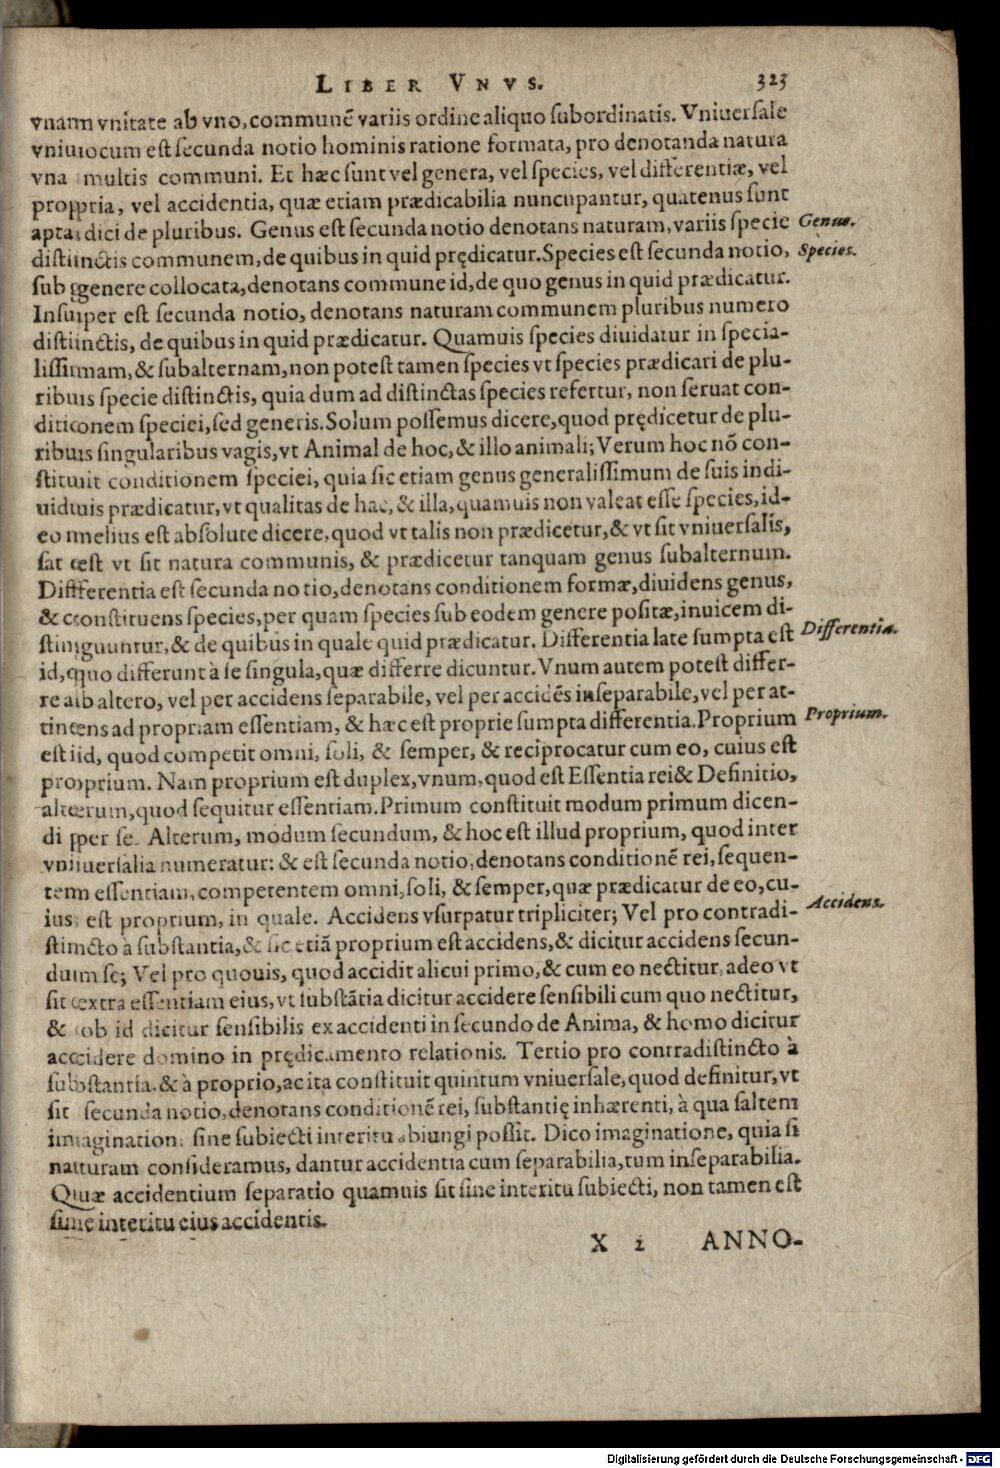 LIBER VNVS. 323
vnam vnitate ab vno, communẽ variis ordine aliquo subordinatis. Vniuersale
vniuocum est secunda notio hominis ratione formata, pro denotanda natura
vna multis communi. Et hæc sunt vel genera, vel species, vel differentiæ, vel
propria, vel accidentia, quæ etiam prædicabilia nuncupantur, quatenus sunt
apta dici de pluribus. Genus est secunda notio denotans naturam, variis specie Genus.
distinctis communem, de quibus in quid prędicatur. Species est secunda notio, Species.
sub genere collocata, denotans commune id, de quo genus in quid prædicatur.
Insuper est secunda notio, denotans naturam communem pluribus numero
distinctis, de quibus in quid prædicatur. Quamuis species diuidatur in specia-
lissimam, & subalternam, non potest tamen species vt species prædicari de plu-
ribus specie distinctis, quia dum ad distinctas species refertur, non seruat con-
ditionem speciei, sed generis. Solum possemus dicere, quod prędicetur de plu-
ribus singularibus vagis, vt Animal de hoc, & illo animali; Verum hoc nõ con-
stituit conditionem speciei, quia sic etiam genus generalissimum de suis indi-
uiduis prædicatur, vt qualitas de hac, & illa, quamuis non valeat esse species, id-
eo melius est absolute dicere, quod vt talis non prædicetur, & vt sit vniuersalis,
sat est vt sit natura communis, & prædicetur tanquam genus subalternum.
Differentia est secunda notio, denotans conditionem formæ, diuidens genus,
& constituens species, per quam species sub eodem genere positæ, inuicem di-
stinguuntur, & de quibus in quale quid prædicatur. Differentia late sumpta est Differentia.
id, quo differunt à se singula, quæ differre dicuntur. Vnum autem potest differ-
re ab altero, vel per accidens separabile, vel per accidẽs inseparabile, vel per at-
tinens ad propriam essentiam, & hæc est proprie sumpta differentia. Proprium Proprium.
est id, quod competit omni, soli, & semper, & reciprocatur cum eo, cuius est
proprium. Nam proprium est duplex, vnum, quod est Essentia rei & Definitio,
alterum, quod sequitur essentiam. Primum constituit modum primum dicen-
di per se. Alterum, modum secundum, & hoc est illud proprium, quod inter
vniuersalia numeratur: & est secunda notio, denotans conditionẽ rei, sequen-
tem essentiam, competentem omni, soli, & semper, quæ prædicatur de eo, cu-
ius est proprium, in quale. Accidens vsurpatur tripliciter; Vel pro contradi- Accidens.
stincto à substantia, & sic etiã proprium est accidens, & dicitur accidens secun-
dum se; Vel pro quouis, quod accidit alicui primo, & cum eo nectitur, adeo vt
sit extra essentiam eius, vt substãtia dicitur accidere sensibili cum quo nectitur,
& ob id dicitur sensibilis ex accidenti in secundo de Anima, & homo dicitur
accidere domino in prędicamento relationis. Tertio pro contradistincto à
substantia, & à proprio, ac ita constituit quintum vniuersale, quod definitur, vt
sit secunda notio, denotans conditionẽ rei, substantię inhærenti, à qua saltem
imaginatione sine subiecti interitu abiungi possit. Dico imaginatione, quia si
naturam consideramus, dantur accidentia cum separabilia, tum inseparabilia.
Quæ accidentium separatio quamuis sit sine interitu subiecti, non tamen est
sine interitu eius accidentis.
X 2 ANNO-
Digitalisierung gefördert durch die Deutsche Forschungsgemeinschaft - DFG